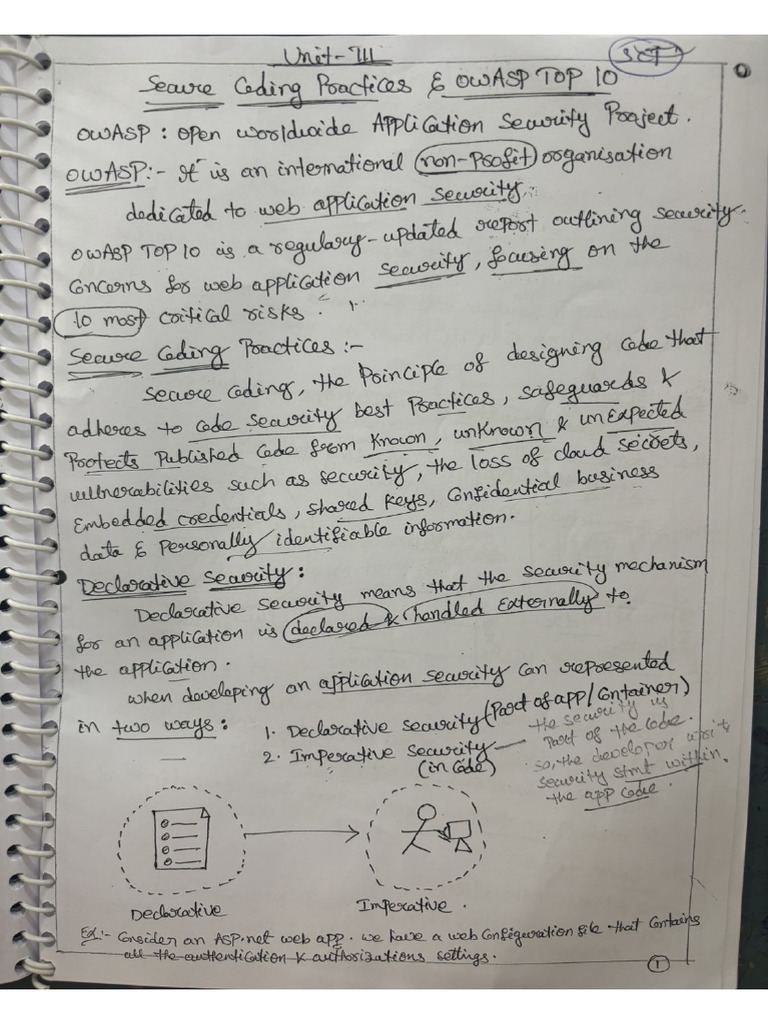 Unit-III
SET
Secure Coding Practices & OWASP TOP 10
OWASP : Open worldwide Application Security Project.
OWASP:- It is an international non-profit organisation
dedicated to web application security.
OWASP TOP 10 is a regulary-updated report outlining security
concerns for web application security, focusing on the
10 most critical risks.
Secure Coding Practices :-
Secure coding, the Principle of designing code that
adheres to code security best Practices, safeguards &
Protects Published code from known, unknown & unExpected
vulnerabilities such as security, the loss of cloud secrets,
Embedded credentials, shared keys, Confidential business
data & Personally identifiable information.
Declarative Security :
Declarative security means that the security mechanism
for an application is declared & handled Externally to
the application.
when developing an application security can represented
in two ways : 1. Declarative security (Part of app/Container)
2. Imperative Security —
(in Code)
the security is
Part of the code.
so, the developer writ
security stmt within
the app code.
Declarative
Imperative.
Ex:- Consider an ASP.net web app. we have a web configuration file that contains
all the authentication & authorizations settings.
1